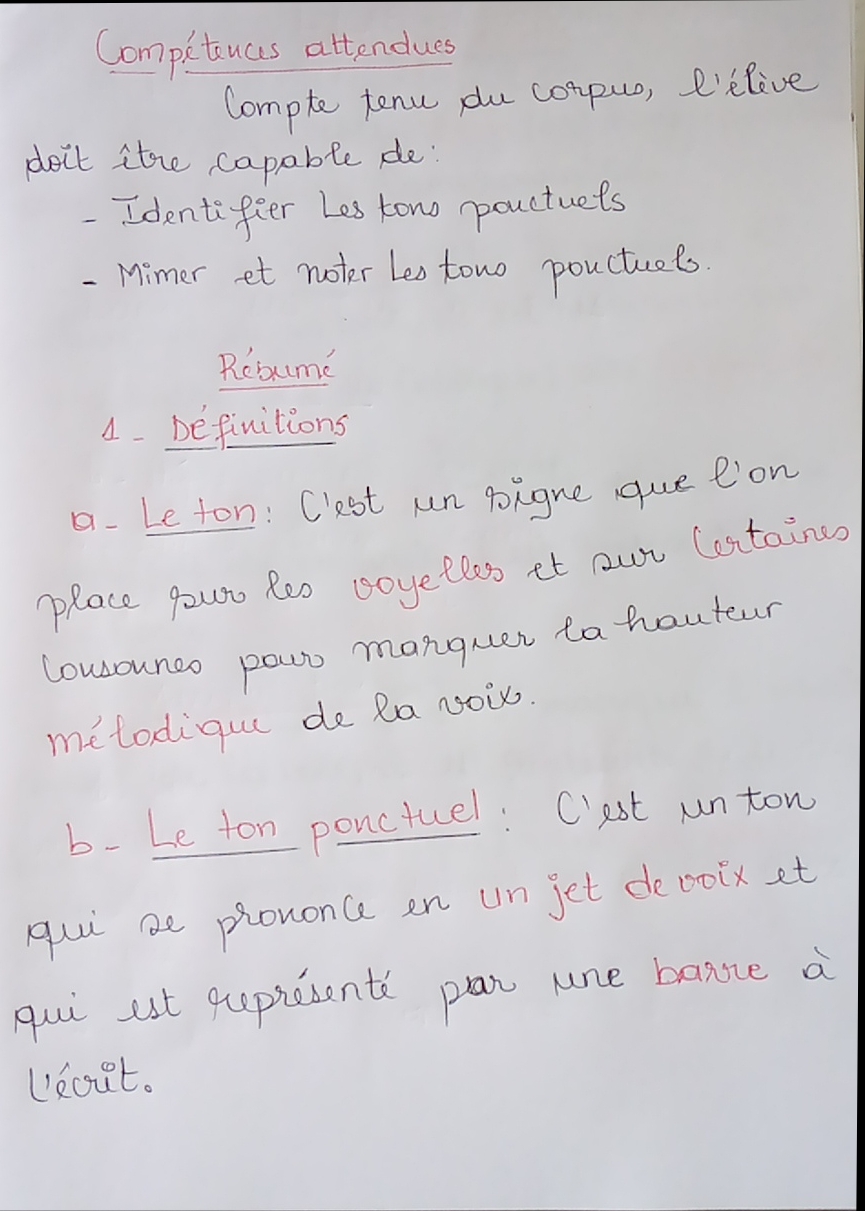 Compétences attendues
Compte tenu du corpus, l'élève
doit être capable de:
- Identifier les tons ponctuels
- Mimer et noter les tons ponctuels.
Résumé
1 - Définitions
a - Le ton: C'est un signe que l'on
place sur les voyelles et sur certaines
consonnes pour marquer la hauteur
mélodique de la voix.
b - Le ton ponctuel: C'est un ton
qui se prononce en un jet de voix et
qui est représenté par une barre à
l'écrit.